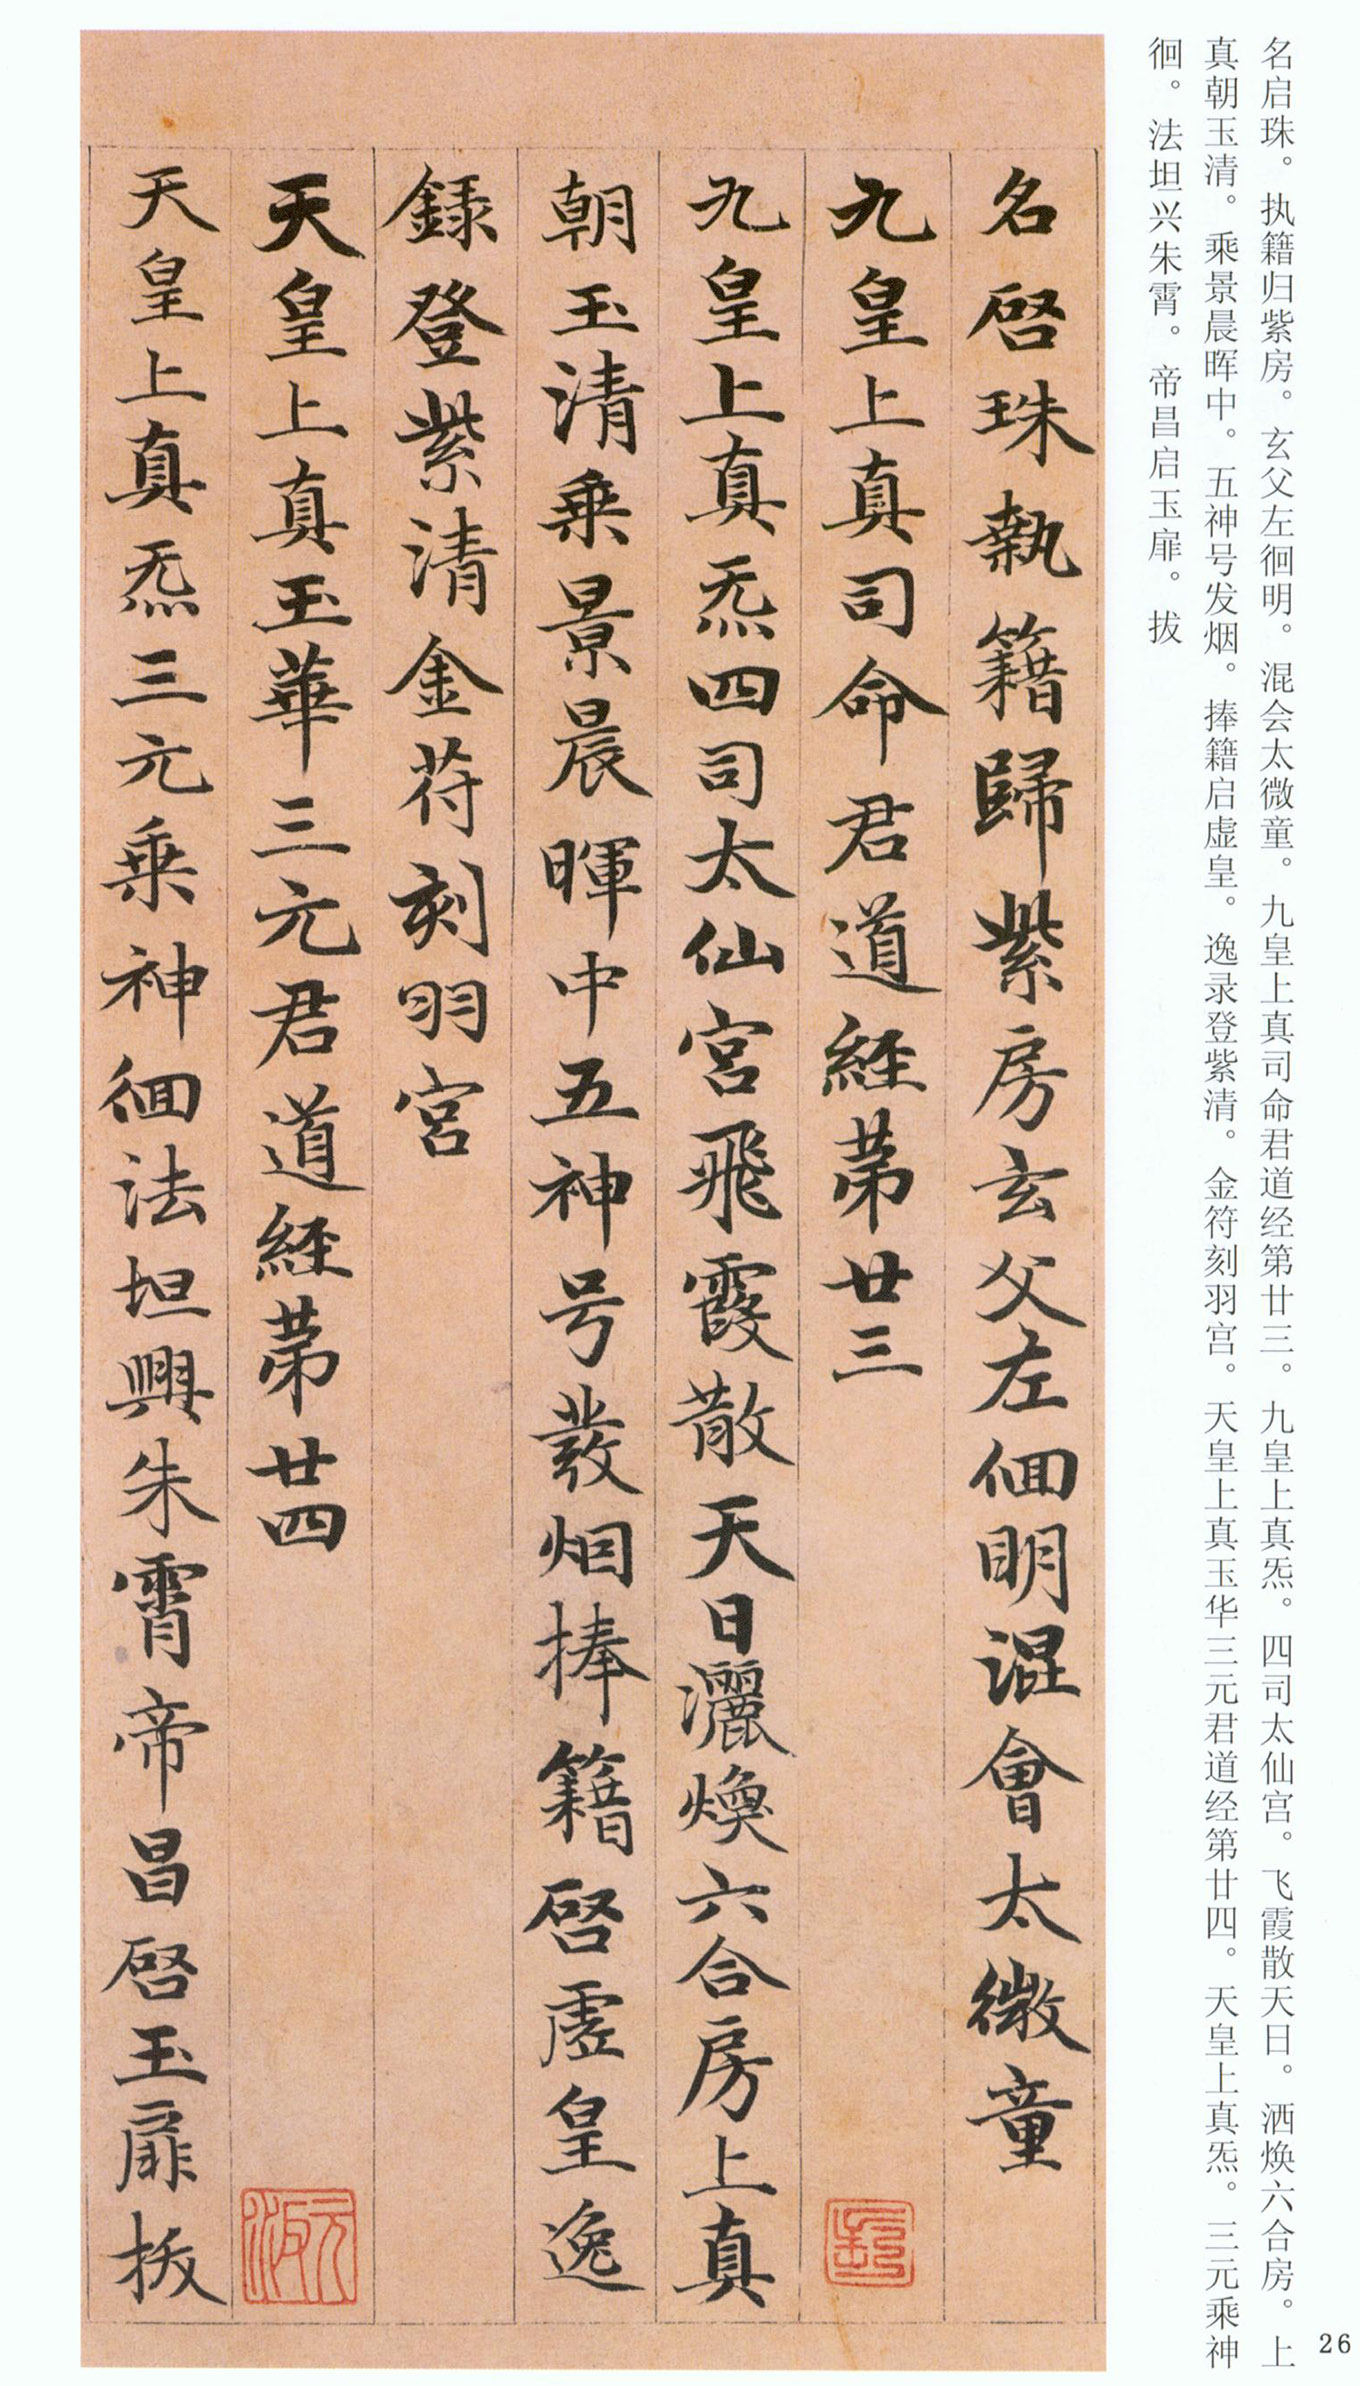 名启珠。执籍归紫房。玄父左徊明。混会太微童。九皇上真司命君道经第廿三。九皇上真炁。四司太仙宫。飞霞散天日。洒焕六合房。上
真朝玉清。乘景晨晖中。五神号发烟。捧籍启虚皇。逸录登紫清。金符刻羽宫。天皇上真玉华三元君道经第廿四。天皇上真炁。三元乘神
徊。法坦兴朱霄。帝昌启玉扉。拔
名啓珠執籍歸紫房玄父左佪明混會太微童
九皇上真司命君道經第廿三
九皇上真炁四司太仙宮飛霞散天日灑煥六合房上真
朝玉清乘景晨暉中五神号發烟捧籍啓虛皇逸
錄登紫清金苻刻羽宮
天皇上真玉華三元君道經第廿四
天皇上真炁三元乘神佪法坦興朱霄帝昌啓玉扉拔
26